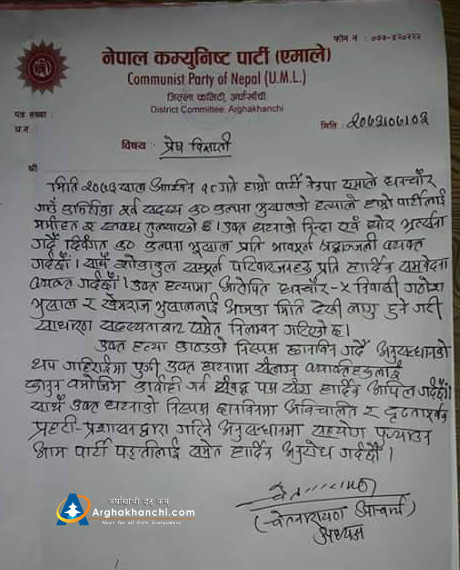 फोन नं : ०७७-४२०२२२
नेपाल कम्युनिष्ट पार्टी (एमाले)
Communist Party of Nepal (U.M.L.)
जिल्ला कमिटी, अर्घाखाँची
District Committee, Arghakhanchi
पत्र संख्या :
च.नं. :
मिति : २०७३।०६।०३
विषय : प्रेस विज्ञप्ती
श्री
मिति २०७३ साल गते हाम्रो पार्टी नेकपा एमाले धनचौर
गाउँ कमिटीका पूर्व सदस्य क० कल्पना भुसालको हत्याले हाम्रो पार्टीलाई
मर्माहत र स्तब्ध तुल्याएको छ। उक्त घटनाको निन्दा एवं घोर भर्त्सना
गर्दै दिवंगत क० कल्पना भुसाल प्रति भावपूर्ण श्रद्धाञ्जली व्यक्त
गर्दछौं। साथै शोकाकुल सम्पूर्ण परिवारजनहरु प्रति हार्दिक समवेदना
व्यक्त गर्दछौं। उक्त हत्यामा आरोपित धनचौर-५ निवासी
भुसाल र खेमराज भुसाललाई आजका मिति देखी लागु हुने गरी
साधारण सदस्यताबाट समेत निलम्बन गरिएको छ।
उक्त हत्या काण्डको निस्पक्ष छानविन गर्दै अनुसन्धानको
थप गहिराईमा पुगी उक्त घटनामा संलग्न व्यक्तीहरुलाई
कानुन बमोजिम कार्वाही गर्न संवद्ध पक्ष संग हार्दिक अपिल गर्दछौं।
साथै उक्त घटनाको निस्पक्ष छानविनमा अविचलित र दृढतापूर्वक
प्रहरी-प्रशासनद्वारा गरिने अनुसन्धानमा सहयोग पुर्‍याउन
आम पार्टी पङ्तीलाई समेत हार्दिक अनुरोध गर्दछौं।
(चेतनारायण आचार्य)
अध्यक्ष
अर्घाखाँची डट कम
Arghakhanchi.com
News for all from Everywhere